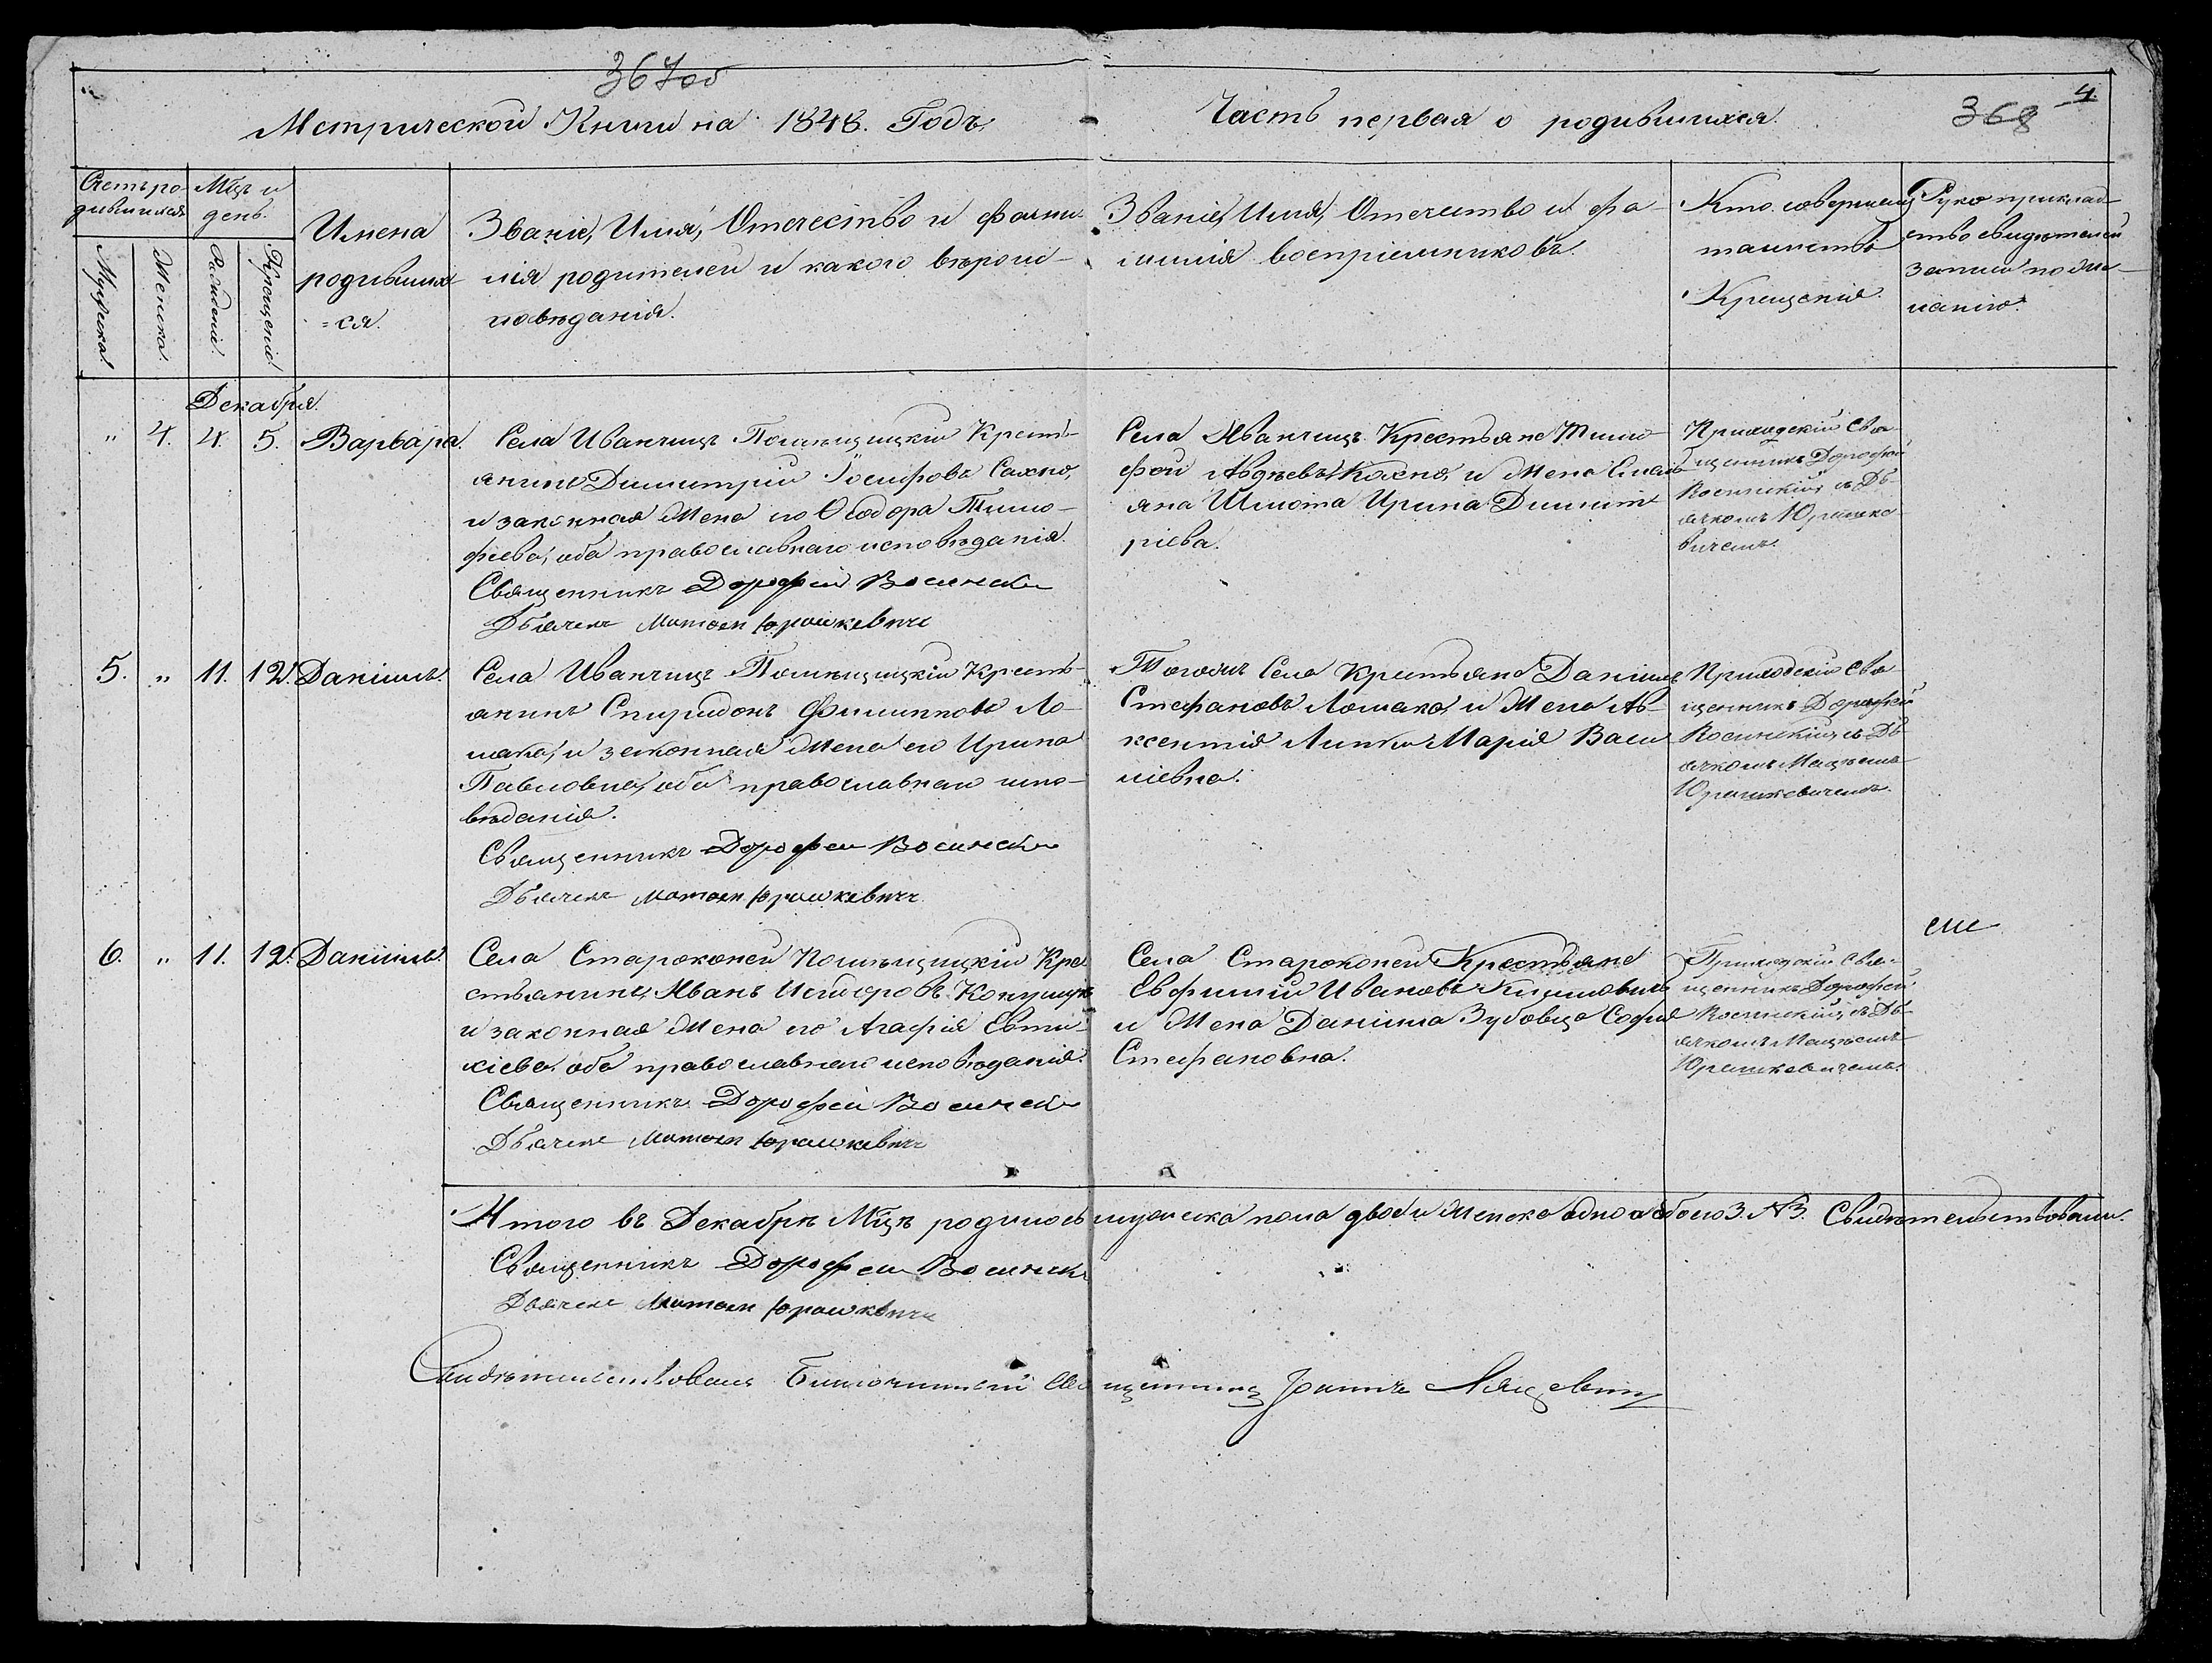 367об
Метрической Книги на 1848. Годъ.
Часть первая о родившихся.
368
4.
Счетъ ро-
дившихся
Мцъ и
день.
Мужска.
Женска.
Рожденія.
Крещенія.
Имена
родивших
=ся.
Званіе, Имя, Отечество и фами-
лія родителей и какого вѣроис-
повѣданія.
Званіе, Имя, Отечество и фа-
милія воспріемниковъ.
Кто совершалъ
таинство
Крещенія.
Рукоприклад-
ство свидѣтелей
записи по же-
ланію.
Декабря.
" 4. 4. 5. Варвара.
Села Иванчицъ Помѣщицкій Кресть-
янинъ Димитрій Іосифовъ Сахно,
и законная Жена его Ѳеодора Тимо-
феева, оба православнаго исповѣданія.
Священникъ Дорофей
Дьячекъ Матѳей Юрашкевичъ
Села Иванчицъ Крестьяне Тимо-
фей Авдѣевъ и Жена Емель-
яна Шмота Ирина Димит-
ріева.
Приходскій Свя-
щенникъ Дорофей
съ Дь-
ячкомъ Юрашке-
вичемъ.
5. " 11. 12. Даніилъ.
Села Иванчицъ Помѣщицкій Кресть-
янинъ Спиридонъ Филипповъ Ло-
мако, и законная Жена его Ирина
Павловна, оба православнаго испо-
вѣданія.
Священникъ Дорофей
Дьячекъ Матѳей Юрашкевичъ
Тогожъ Села Крестьяне Даніилъ
Стефановъ Ломако, и Жена Ав-
ксентія Марія Васи-
ліевна.
Приходскій Свя-
щенникъ Дорофей
съ Дь-
ячкомъ Матѳеемъ
Юрашкевичемъ.
6. " 11. 12. Даніилъ.
Села Староконей Помѣщицкій Кре-
стьянинъ Иванъ
и законная Жена его Агафія Евти-
хіева, оба православнаго исповѣданія.
Священникъ Дорофей
Дьячекъ Матѳей Юрашкевичъ
Села Староконей Крестьяне
Евфимій Ивановъ
и Жена Даніила Зубовца Софія
Стефановна.
Приходскій Свя-
щенникъ Дорофей
съ Дь-
ячкомъ Матѳеемъ
Юрашкевичемъ.
Итого въ Декабрѣ Мцѣ родилось мужеска пола двое и женска одно обоего 3. №3. Свидѣтельствовали.
Священникъ Дорофей
Дьячекъ Матѳей Юрашкевичъ
Свидѣтельствовалъ Благочинный Священникъ Іоаннъ